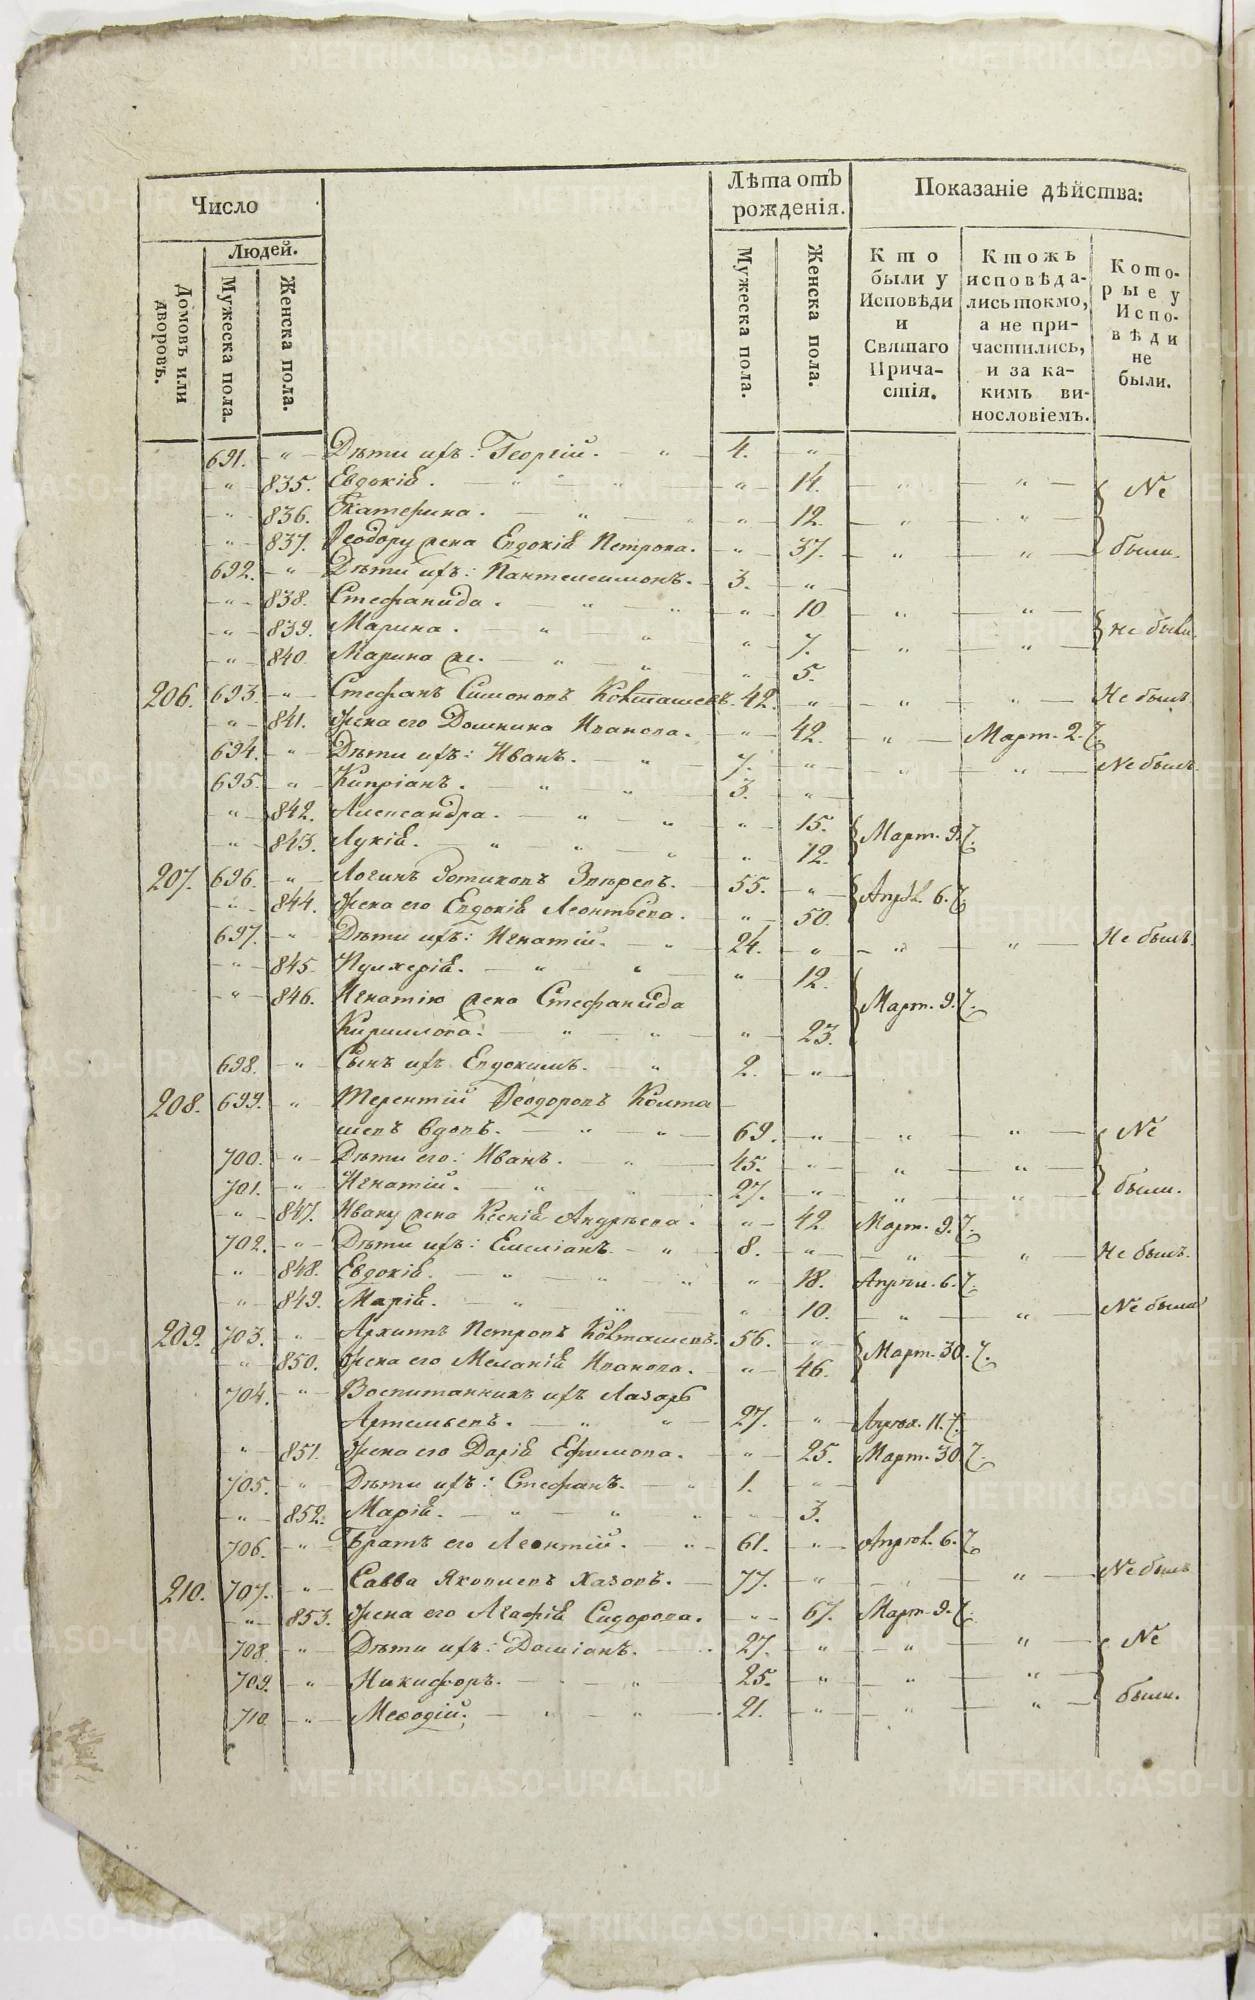 Число
Людей.
Домовъ или дворовъ.
Мужеска пола.
Женска пола.
Лѣта отъ
рожденія.
Мужеска пола.
Женска пола.
Показаніе дѣйства:
Кто
были у
Исповѣди
и
Святаго
Прича-
стія.
Ктожъ
исповѣда-
лись токмо,
а не при-
частились,
и за ка-
кимъ ви-
нословіемъ.
Кото-
рые у
Испо-
вѣди
не
были.
691. " Дѣти ихъ: Георгій. " 4. "
" 835. Евдокія. " " " 14. " " Не
" 836. Екатерина. " " " 12. " "
" 837. Ѳеодору жена Евдокія Петрова. " 37. " " были.
692. " Дѣти ихъ: Пантелеимонъ. 3. "
" 838. Стефанида. " " " 10 " "
" 839. Марина. " " " 7. " " не были.
" 840. Марина же. " " " 5.
206. 693. " Стефанъ Симоновъ Ковташевъ. 42. " " " Не былъ.
" 841. Жена его Домнина Иванова. " 42. " Март. 2. 7.
694. " Дѣти ихъ: Иванъ. " 7. " " " Не былъ.
695. " Кипріанъ. " " 3. "
" 842. Александра. " " " 15. Март. 9. 7.
" 843. Лукія. " " " " 12.
207. 696. " Логинъ Зотиковъ Звѣревъ. 55. " Апрѣл. 6. 7.
" 844. Жена его Евдокія Леонтьева. " 50.
697. " Дѣти ихъ: Игнатій. " 24. " " " Не былъ.
" 845. Пулхерія. " " " 12.
" 846. Игнатію жена Стефанида Март. 9. 7.
Кириллова. " " " 23.
698. " Сынъ ихъ Евдокимъ. " 2. "
208. 699. " Терентій Ѳеодоровъ Колта
шевъ вдовъ. " " 69. " " " Не
700. " Дѣти его: Иванъ. " 45. " " "
701. " Игнатій. " " 27. " " " были.
" 847. Ивану жена Ксенія Андреева. " 42. Март. 9. 7.
702. " Дѣти ихъ: Емеліанъ. " 8. " " " Не былъ.
" 848. Евдокія. " " " " 18. Април. 6. 7.
" 849. Марія. " " " 10. " " Не была
209. 703. " Архипъ Петровъ Ковташевъ. 56. " Март. 30. 7.
" 850. Жена его Меланія Иванова. " 46.
704. " Воспитанникъ ихъ Лазарь
Артемьевъ. " " 27. " 11. 7.
" 851. Жена его Дарія Ефимова. " 25. Март. 30 7.
705. " Дѣти ихъ: Стефанъ. " 1. "
" 852. Марія. " " " " 3.
706. " Братъ его Леонтій. " 61. " Апрѣл. 6. 7.
210. 707. " Савва Яковлевъ Хазовъ. 77. " " " Не былъ
" 853. Жена его Агафія Сидорова. " 67. Март. 9. 7.
708. " Дѣти ихъ: Даміанъ. 27. " " " Не
709. " Никифоръ. " " 25. " " "
710 " Меѳодій. " " 21. " " " были.
METRIKI.GASO-URAL.RU